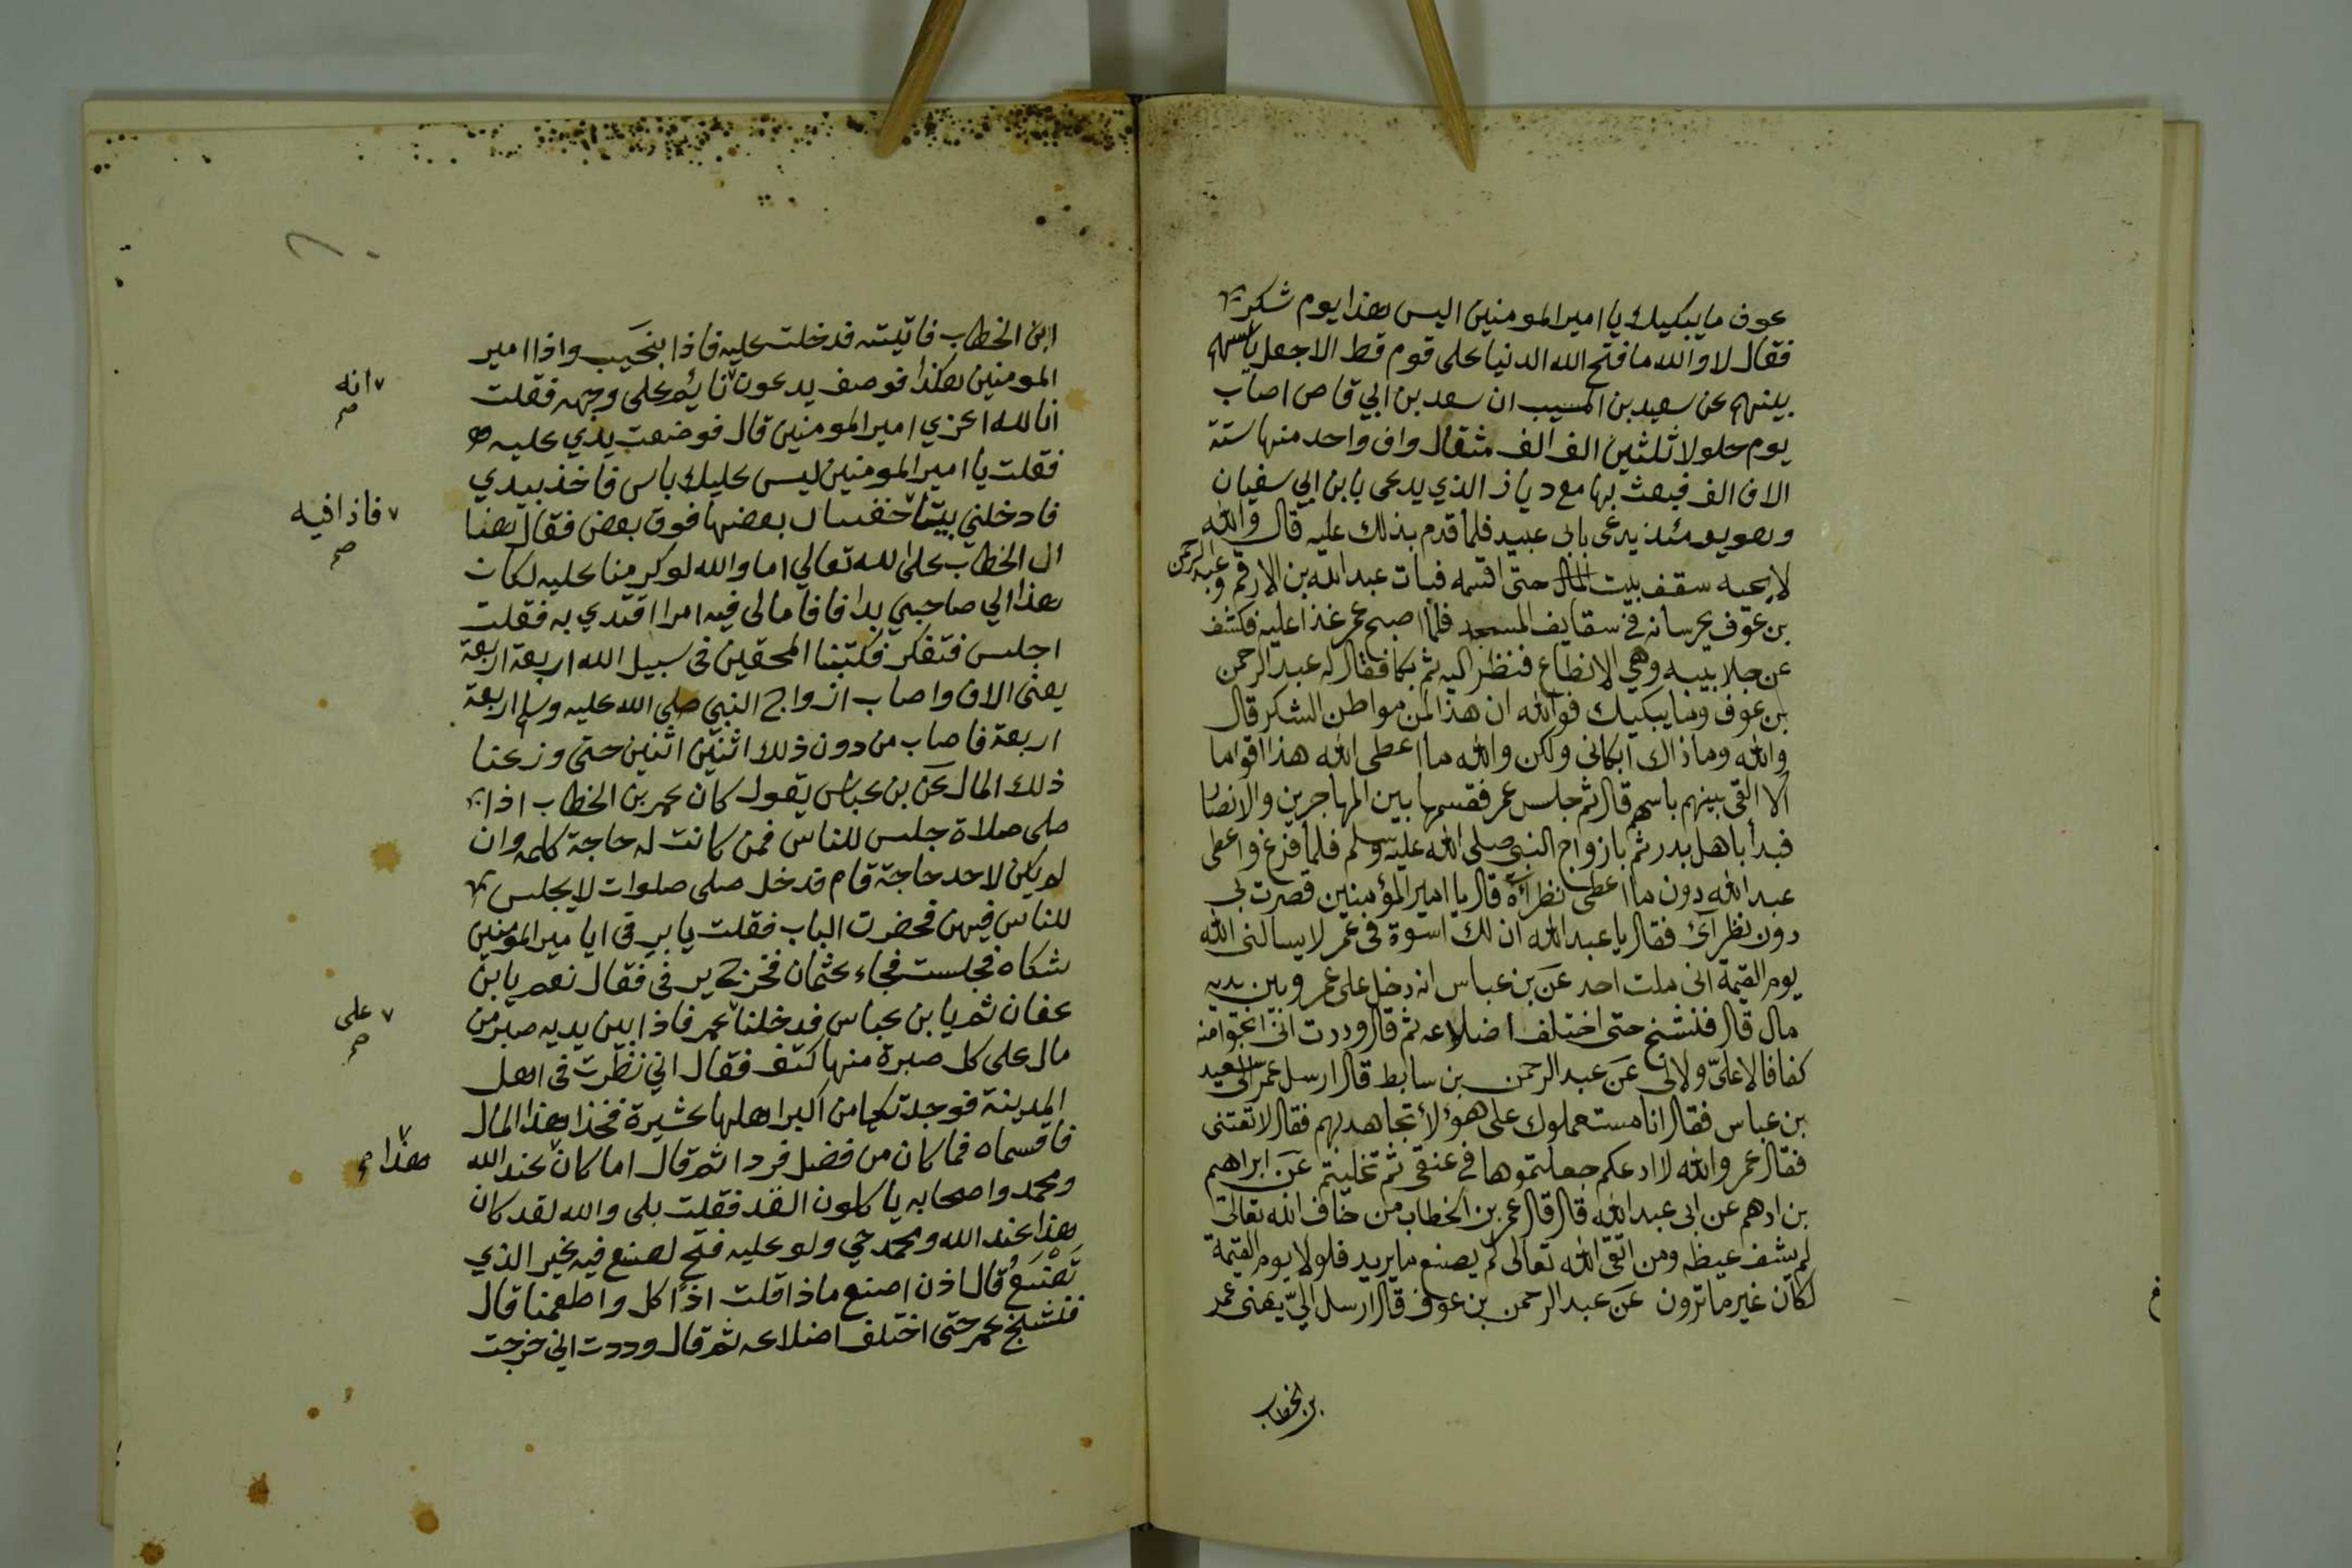 عوف ما يبكيك يا امير المومنين اليس هذا يوم شكر
فقال لا والله ما فتح الله الدنيا على قوم قط الا جعل باسهم
بينهم عن سعيد بن المسيب ان سعد بن ابي قاص اصاب
يوم جلولا ثلثين الف الف مثقال واف واحد منها ستة
الاف الف فبعث بها مع دياز الذي يدعى بابن ابي سفيان
وهو يومئذ يدعى بابى عبيد فلما قدم بذلك عليه قال والله
لا يجبه سقف بيت المال حتى اقسمه فبات عبد الله بن الارقم وعبد الرحمن
بن عوف يحرسانه فى سقايف المسجد فلما اصبح عمر غدا عليه فكشف
عن جلابيبه وهي الانطاع فنظر اليه ثم بكا فقال له عبد الرحمن
بن عوف وما يبكيك فوالله ان هذا لمن مواطن الشكر قال
والله وما ذاك ابكانى ولكن والله ما اعطى الله هذا اقواما
الا القى بينهم باسهم قال ثم جلس عمر فقسمها بين المهاجرين والانصار
فبدأ باهل بدر ثم بازواج النبى صلى الله عليه وسلم فلما فرغ واعطى
عبد الله دون ما اعطى نظراءه قال يا امير المؤمنين قصرت بى
دون نظرآئ فقال يا عبد الله ان لك اسوة فى عمر لا يسالنى الله
يوم القيمة انى ملت احد عن بن عباس انه دخل على عمر وبين يديه
مال قال فنشنج حتى اختلف اضلاعه ثم قال وددت انى انجوا منه
كفافا لا علىّ ولا لى عن عبد الرحمن بن سابط قال ارسل عمر الى سعيد
بن عباس فقال انا مستعملوك على هؤلاء تجاهد بهم فقال لا تفتنى
فقال عمر والله لا ادعكم جعلتموها فى عنقى ثم تخليتم عن ابراهيم
بن ادهم عن ابى عبد الله قال قال عمر بن الخطاب من خاف الله تعالى
لم يشف غيظه ومن اتقى الله تعالى لم يصنع ما يريد فلولا يوم القيمة
لكان غير ما ترون عن عبد الرحمن بن عوف قال ارسل الىّ يعنى عمر
بن الخطاب
ابن الخطاب فاتيته فدخلت عليه فاذا بنحيب واذا امير
المومنين هكذا فوصف يدعون نايم على وجهه فقلت
انه صح
انا لله اعزي امير المومنين قال فوضعت يدي عليه
فقلت يا امير المومنين ليس عليك باس فاخذ بيدي
فادخلني بيتا بعضها فوق بعض فقال هنا
فاذا فيه صح
ال الخطاب على الله تعالي اما والله لو كرمنا عليه لكان
هذا الي صاحبي بدا فاقاما لى فيه امرا اقتدي به فقلت
اجلس فتفكر فكتبنا المحقين فى سبيل الله اربعة اربعة
يعنى الاف واصاب ازواج النبي صلى الله عليه وسلم اربعة
اربعة فاصاب من دون ذلك اثنين اثنين حتى وزعنا
ذلك المال عن بن عباس يقول كان عمر بن الخطاب اذا
صلى صلاة جلس للناس فمن كانت له حاجة كلمه وان
لم يكن لاحد حاجة قام فدخل صلى صلوات لا يجلس
للناس فيهن فحضرت الباب فقلت يا يرفى ايا مير المومنين
شكاه فجلست فجاء عثمان فخرج يرفى فقال نعم يا بن
عفان ثم يا بن عباس فدخلنا عمر فاذا بين يديه صبر من
على صح
مال على كل صبرة منها كتف فقال اني نظرت فى اهل
المدينة فوجدتكما من اكبر اهلها عشيرة فخذا هذا المال
فاقسماه فما كان من فضل فردا ثم قال اما كان عند الله
هذا صح
ومحمد واصحابه ياكلون القد فقلت بلى والله لقد كان
هذا عند الله ومحمد حي ولو عليه فتح لصنع فيه غير الذي
تصنع قال اذن اصنع ماذا قلت اذًا كل واطعمنا قال
فنشنج عمر حتى اختلف اضلاعه ثم قال وددت اني خرجت